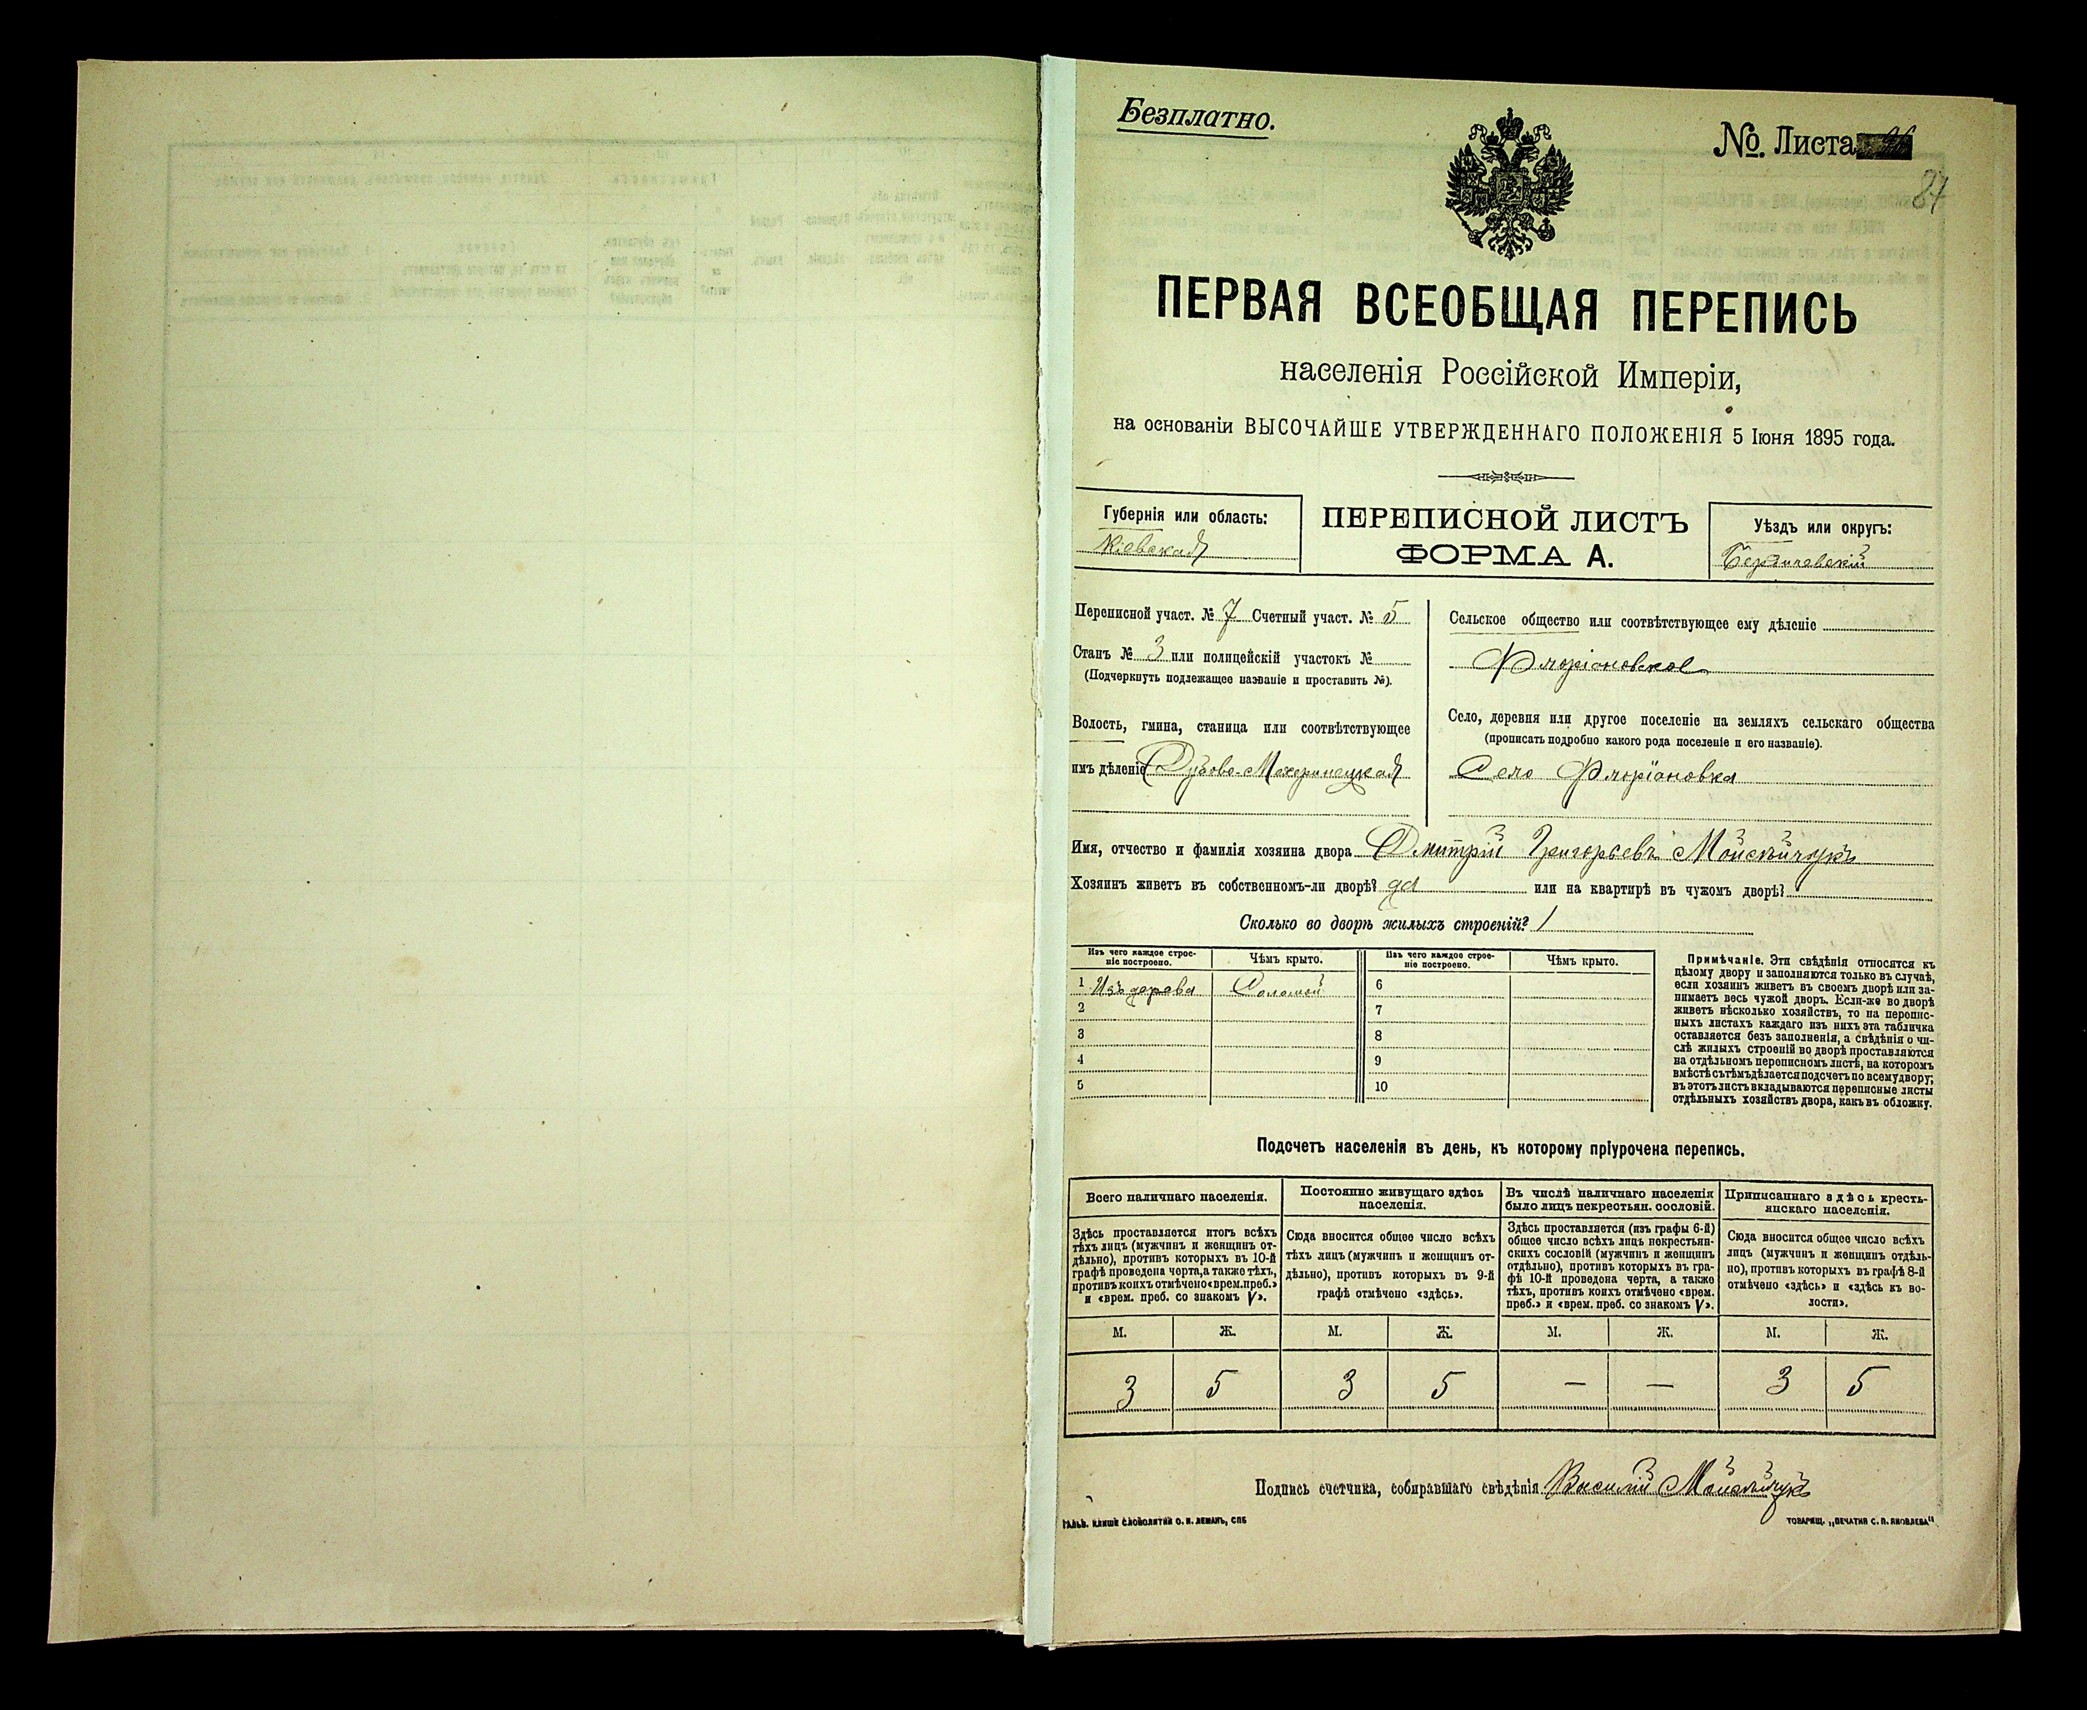 Безплатно.
№. Листа
84
ПЕРВАЯ ВСЕОБЩАЯ ПЕРЕПИСЬ
населенія Россійской Имперіи,
на основаніи ВЫСОЧАЙШЕ УТВЕРЖДЕННАГО ПОЛОЖЕНІЯ 5 Іюня 1895 года.
Губернія или область:
Кіевская
ПЕРЕПИСНОЙ ЛИСТЪ
ФОРМА А.
Уѣздъ или округъ:
Бердичевскій
Переписной участ. № 7 Счетный участ. № 5
Станъ № 3 или полицейскій участокъ №
(Подчеркнуть подлежащее названіе и проставить №).
Волость, гмина, станица или соотвѣтствующее
имъ дѣленіе Дубово-Махаринецкая
Сельское общество или соотвѣтствующее ему дѣленіе
Флоріановское
Село, деревня или другое поселеніе на земляхъ сельскаго общества
(прописать подробно какого рода поселеніе и его названіе).
Село Флоріановка
Имя, отчество и фамилія хозяина двора Дмитрій Григорьевъ Мойсѣйчукъ
Хозяинъ живетъ въ собственномъ-ли дворѣ? да или на квартирѣ въ чужомъ дворѣ?
Сколько во дворѣ жилыхъ строеній? 1
Изъ чего каждое строе-
ніе построено.
Чѣмъ крыто.
Изъ чего каждое строе-
ніе построено.
Чѣмъ крыто.
1 Изъ дерева Соломой 6
2 7
3 8
4 9
5 10
Примѣчаніе. Эти свѣдѣнія относятся къ
цѣлому двору и заполняются только въ случаѣ,
если хозяинъ живетъ въ своемъ дворѣ или за-
нимаетъ весь чужой дворъ. Если-же во дворѣ
живетъ нѣсколько хозяйствъ, то на перепис-
ныхъ листахъ каждаго изъ нихъ эта табличка
оставляется безъ заполненія, а свѣдѣнія о чи-
слѣ жилыхъ строеній во дворѣ проставляются
на отдѣльномъ переписномъ листѣ, на которомъ
вмѣстѣ съ тѣмъ дѣлается подсчетъ по всему двору;
въ этотъ листъ вкладываются переписные листы
отдѣльныхъ хозяйствъ двора, какъ въ обложку.
Подсчетъ населенія въ день, къ которому пріурочена перепись.
Всего наличнаго населенія.
Здѣсь проставляется итогъ всѣхъ
тѣхъ лицъ (мужчинъ и женщинъ от-
дѣльно), противъ которыхъ въ 10-й
графѣ проведена черта, а также тѣхъ,
противъ коихъ отмѣчено «врем. преб.»
и «врем. преб. со знакомъ V».
Постоянно живущаго здѣсь
населенія.
Сюда вносится общее число всѣхъ
тѣхъ лицъ (мужчинъ и женщинъ от-
дѣльно), противъ которыхъ въ 9-й
графѣ отмѣчено «здѣсь».
Въ числѣ наличнаго населенія
было лицъ некрестьян. сословій.
Здѣсь проставляется (изъ графы 6-й)
общее число всѣхъ лицъ некрестьян-
скихъ сословій (мужчинъ и женщинъ
отдѣльно), противъ которыхъ въ гра-
фѣ 10-й проведена черта, а также
тѣхъ, противъ коихъ отмѣчено «врем.
преб.» и «врем. преб. со знакомъ V».
Приписаннаго здѣсь кресть-
янскаго населенія.
Сюда вносится общее число всѣхъ
лицъ (мужчинъ и женщинъ отдѣль-
но), противъ которыхъ въ графѣ 8-й
отмѣчено «здѣсь» и «здѣсь въ во-
лости».
М. Ж. М. Ж. М. Ж. М. Ж.
3 5 3 5 — — 3 5
Подпись счетчика, собиравшаго свѣдѣнія Василій Мойсѣйчукъ
ГАЛЬВ. КЛИШЕ СЛОВОЛИТНИ О. И. ЛЕМАНЪ, СПБ
ТОВАРИЩ. „ПЕЧАТНЯ С. П. ЯКОВЛЕВА"